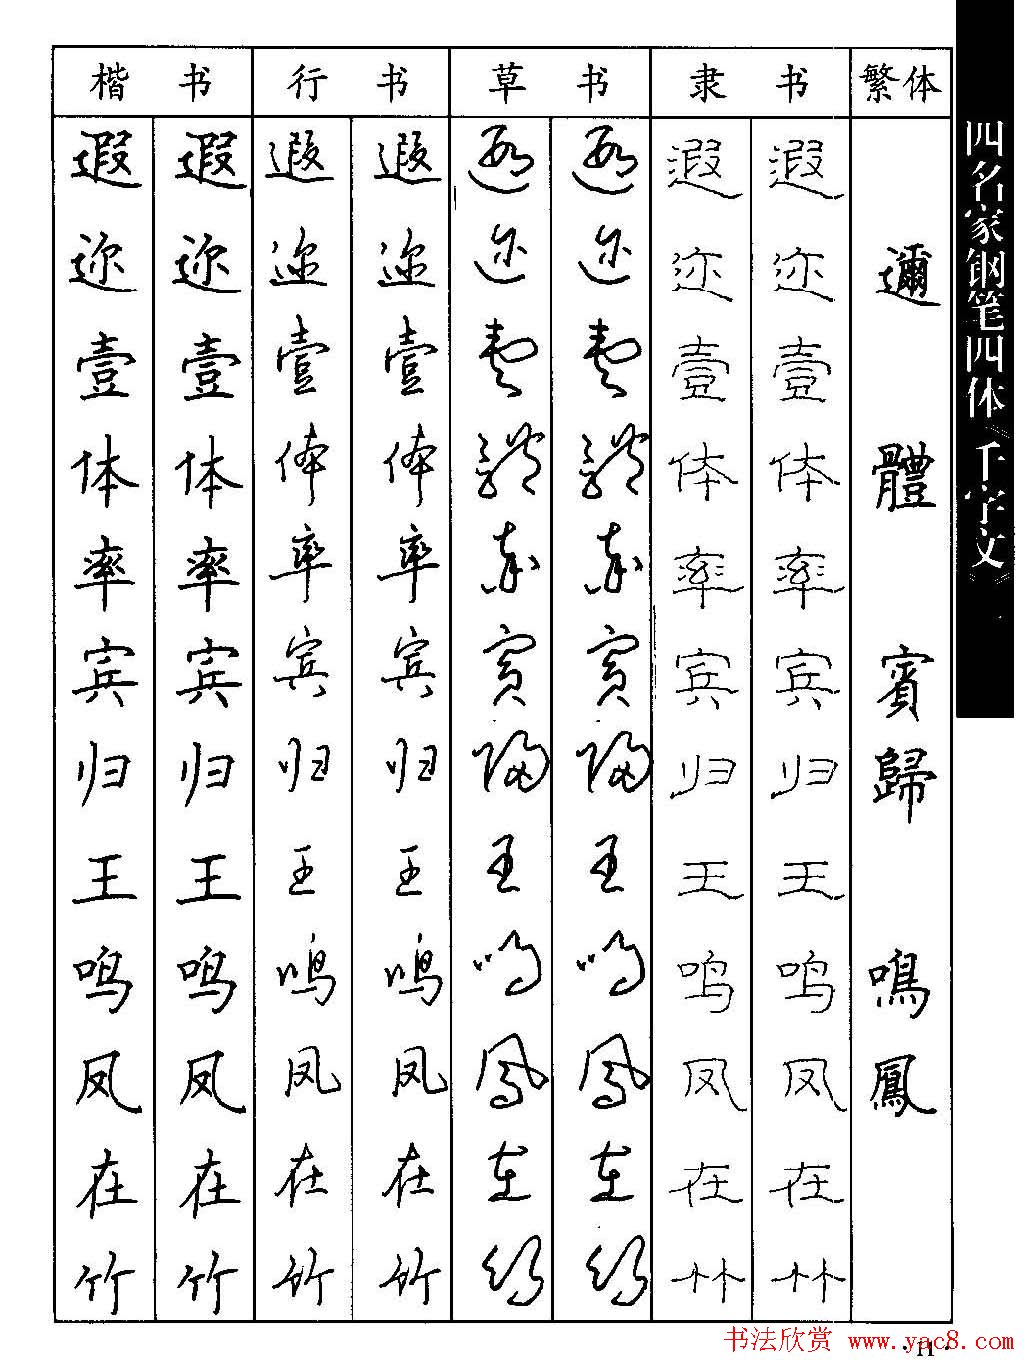 楷书 行书 草书 隶书 繁体
遐 遐 遐 遐 遐 遐 遐 遐
迩 迩 迩 迩 迩 迩 迩 迩 邇
壹 壹 壹 壹 壹 壹 壹 壹
体 体 体 体 體 體 体 体 體
率 率 率 率 率 率 率 率
宾 宾 宾 宾 賓 賓 宾 宾 賓
归 归 归 归 歸 歸 归 归 歸
王 王 王 王 王 王 王 王
鸣 鸣 鸣 鸣 鸣 鸣 鸣 鸣 鳴
凤 凤 凤 凤 鳳 鳳 凤 凤 鳳
在 在 在 在 在 在 在 在
竹 竹 竹 竹 竹 竹 竹 竹
四名家钢笔四体《千字文》
书法欣赏 www.yac8.com
·11·